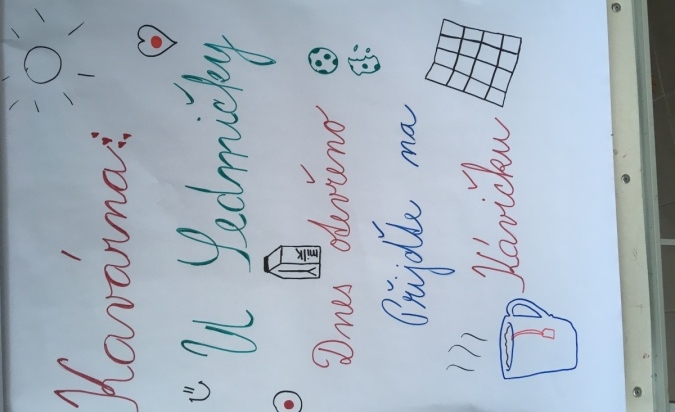 Kavárna
U Sedmičky
milk
Dnes otevřeno
Přijdťe na
Kávičku